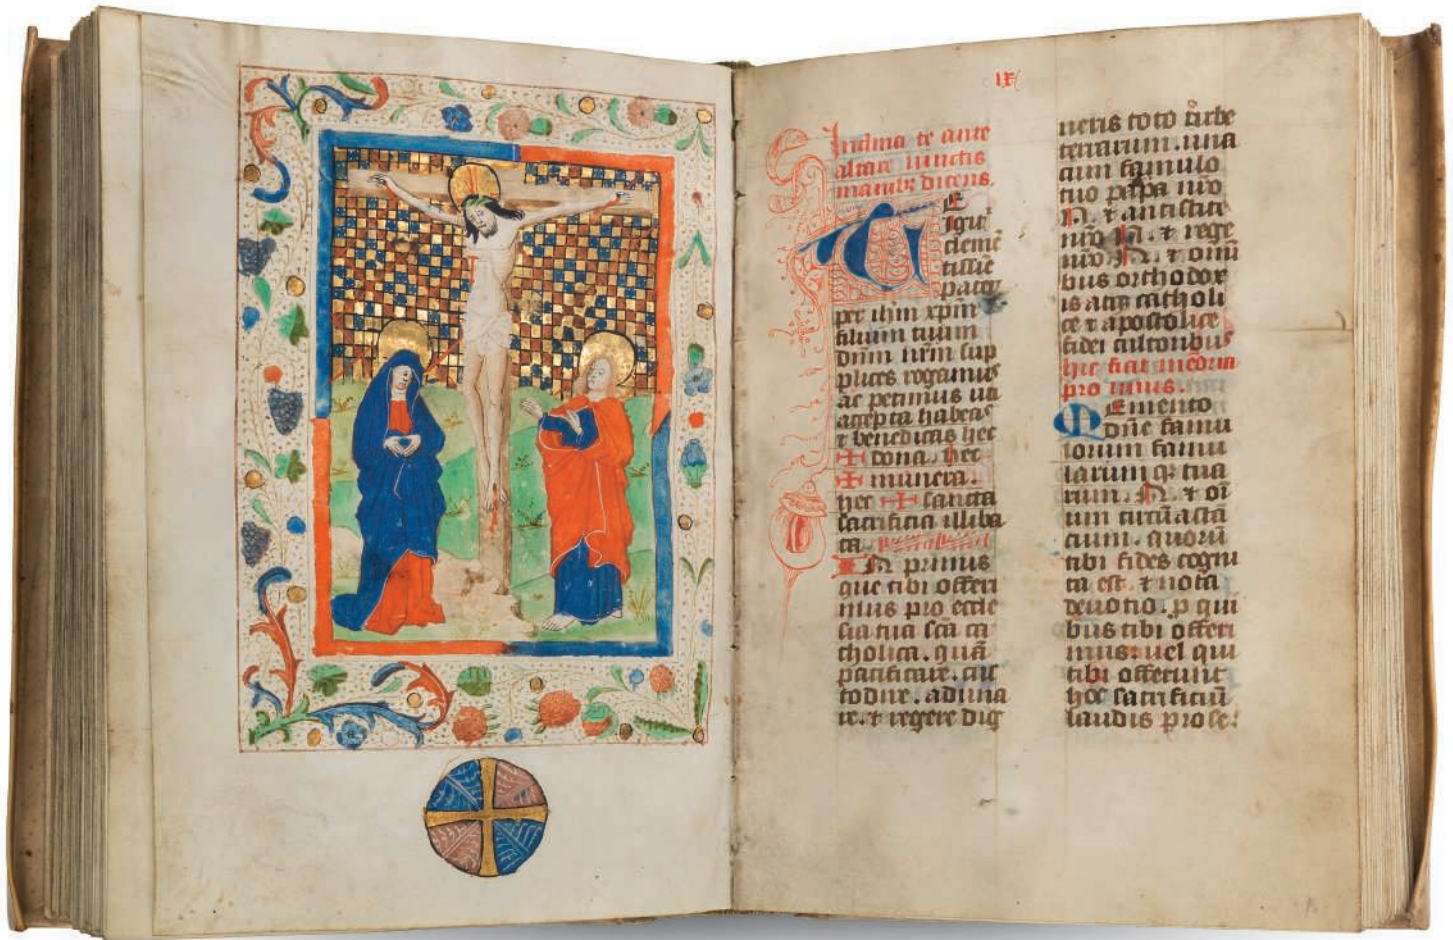 IX
Inclina te ante
altare iunctis
manibꝰ dicens.
TE
igitꝛ
clemē
tissīe
pater
per ihm xpm̄
filium tuum
dn̄m nr̄m sup
plices rogamus
ac petimus uti
accepta habeas
⁊ benedicas hec
✠ dona. hec
✠ munera.
hec ✠ sancta
sacrificia illiba
ta.
IN primis
que tibi offeri
mus pro eccle
sia tua scā ca
tholica. quā
pacificare. cus
todire. aduna
re. ⁊ regere dig
neris toto orbe
terrarum. una
cum famulo
tuo papa nro
N. ⁊ antistite
nr̄o N. ⁊ rege
nr̄o N. ⁊ omni
bus orthodox
is atqꝫ catholi
ce ⁊ apostolice
fidei cultoribus
hic
pro uiuis.
MEmento
dn̄e famu
lorum famu
larum qꝫ tua
rum. N. ⁊ oī
um circūasta
tium. quorū
tibi fides cogni
ta est. ⁊ nota
deuotio. ꝓ qui
bus tibi offeri
mus: uel qui
tibi offerunt
hoc sacrificiū
laudis pro se: